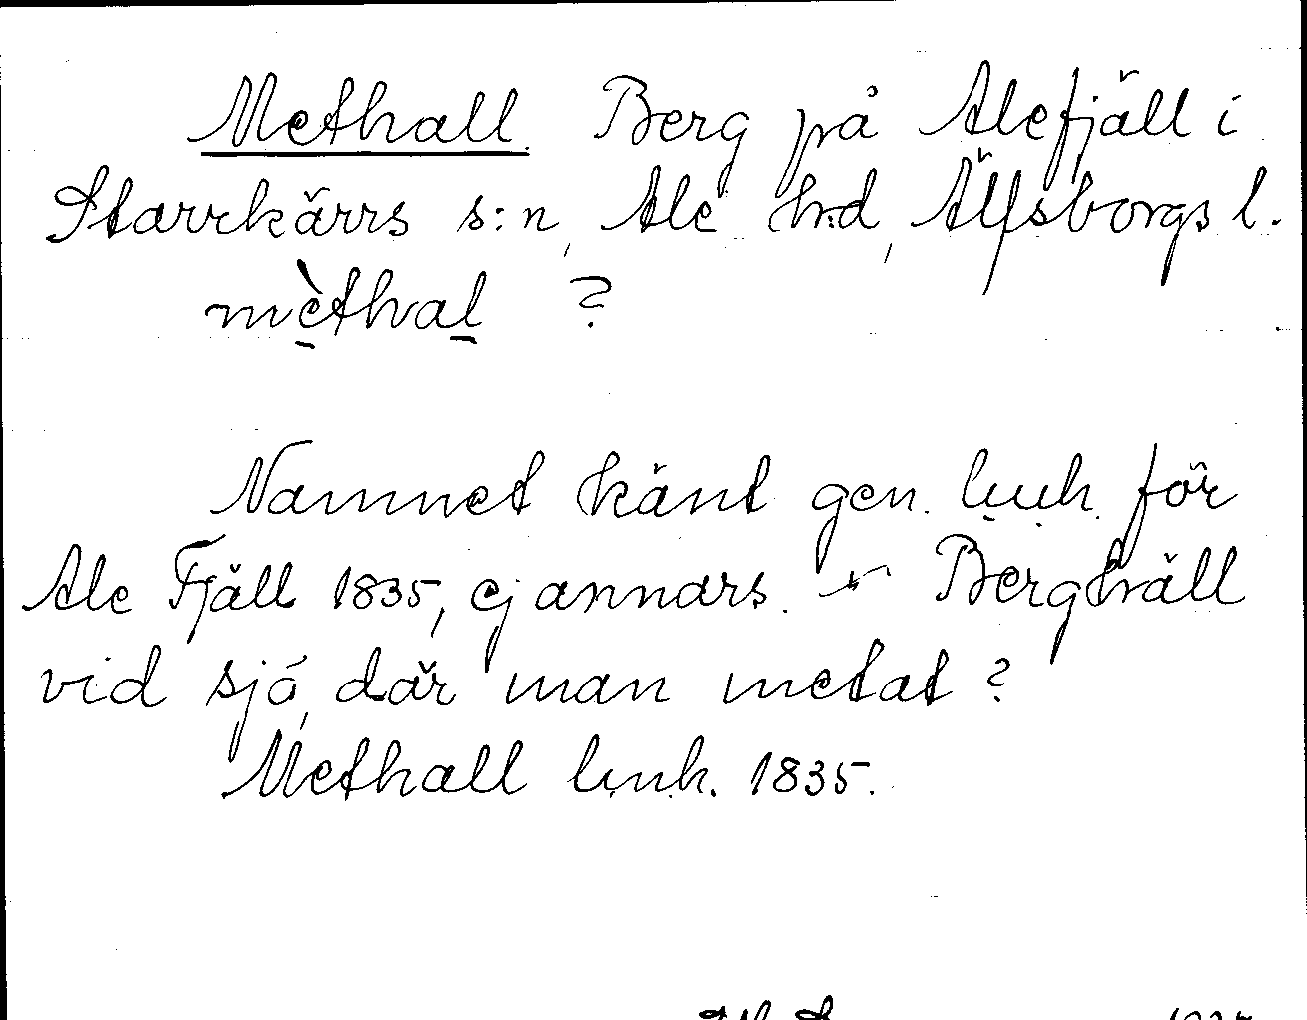 Methall. Berg på Alefjäll i
Starrkärrs s:n, Ale hrd, Älfsborgs l.
mèthal ?
Namnet känt gen. lmk. för
Ale Fjäll 1835, ej annars. Berghäll
vid sjö, där man metat?
Methall lmk. 1835.